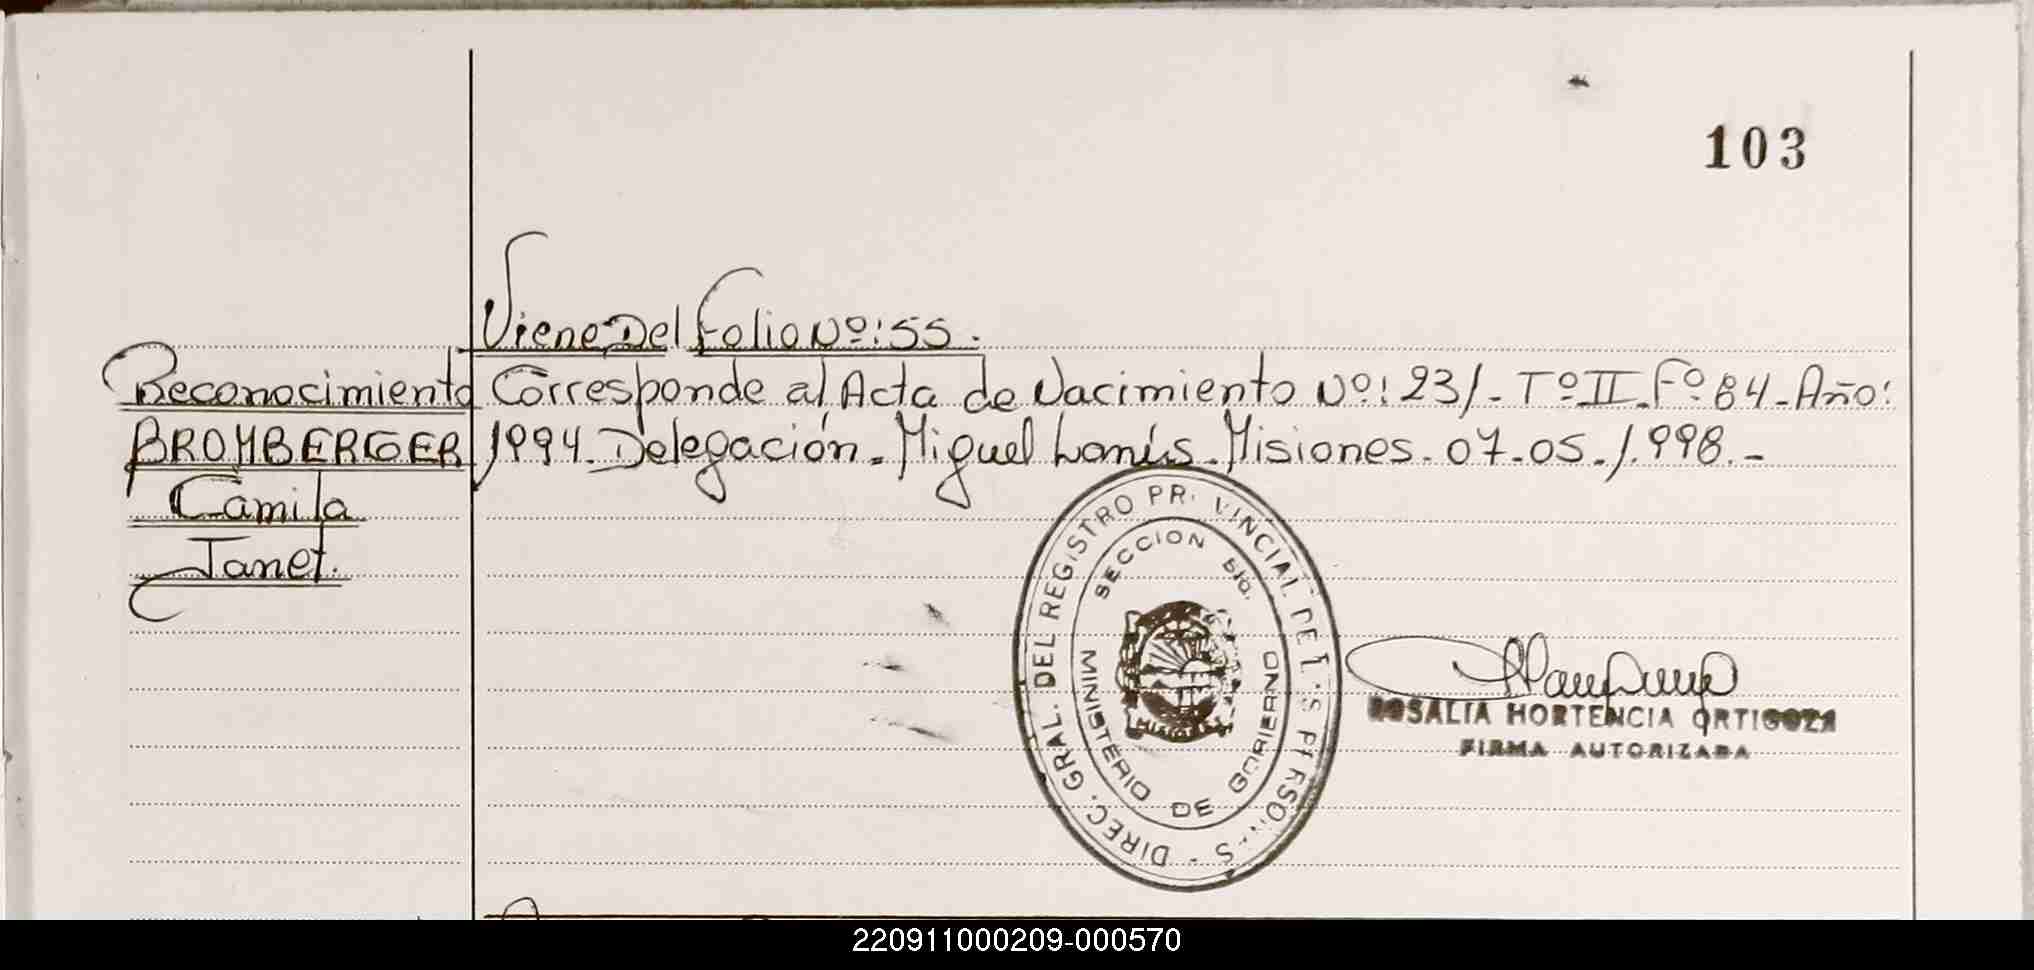 103
Viene Del Folio Nº: 55.
Reconocimiento
BROMBERGER
Camila
Janet.
Corresponde al Acta de Nacimiento Nº: 231- Tº II. Fº 84- Año:
1994. Delegación. Miguel Lanús. Misiones. 07-05-1.998.-
DIREC. GRAL. DEL REGISTRO PR VINCIAL DE L S PERSON S
SECCION
MINISTERIO DE GOBIERNO
ROSALIA HORTENCIA ORTIGOZA
FIRMA AUTORIZADA
220911000209-000570